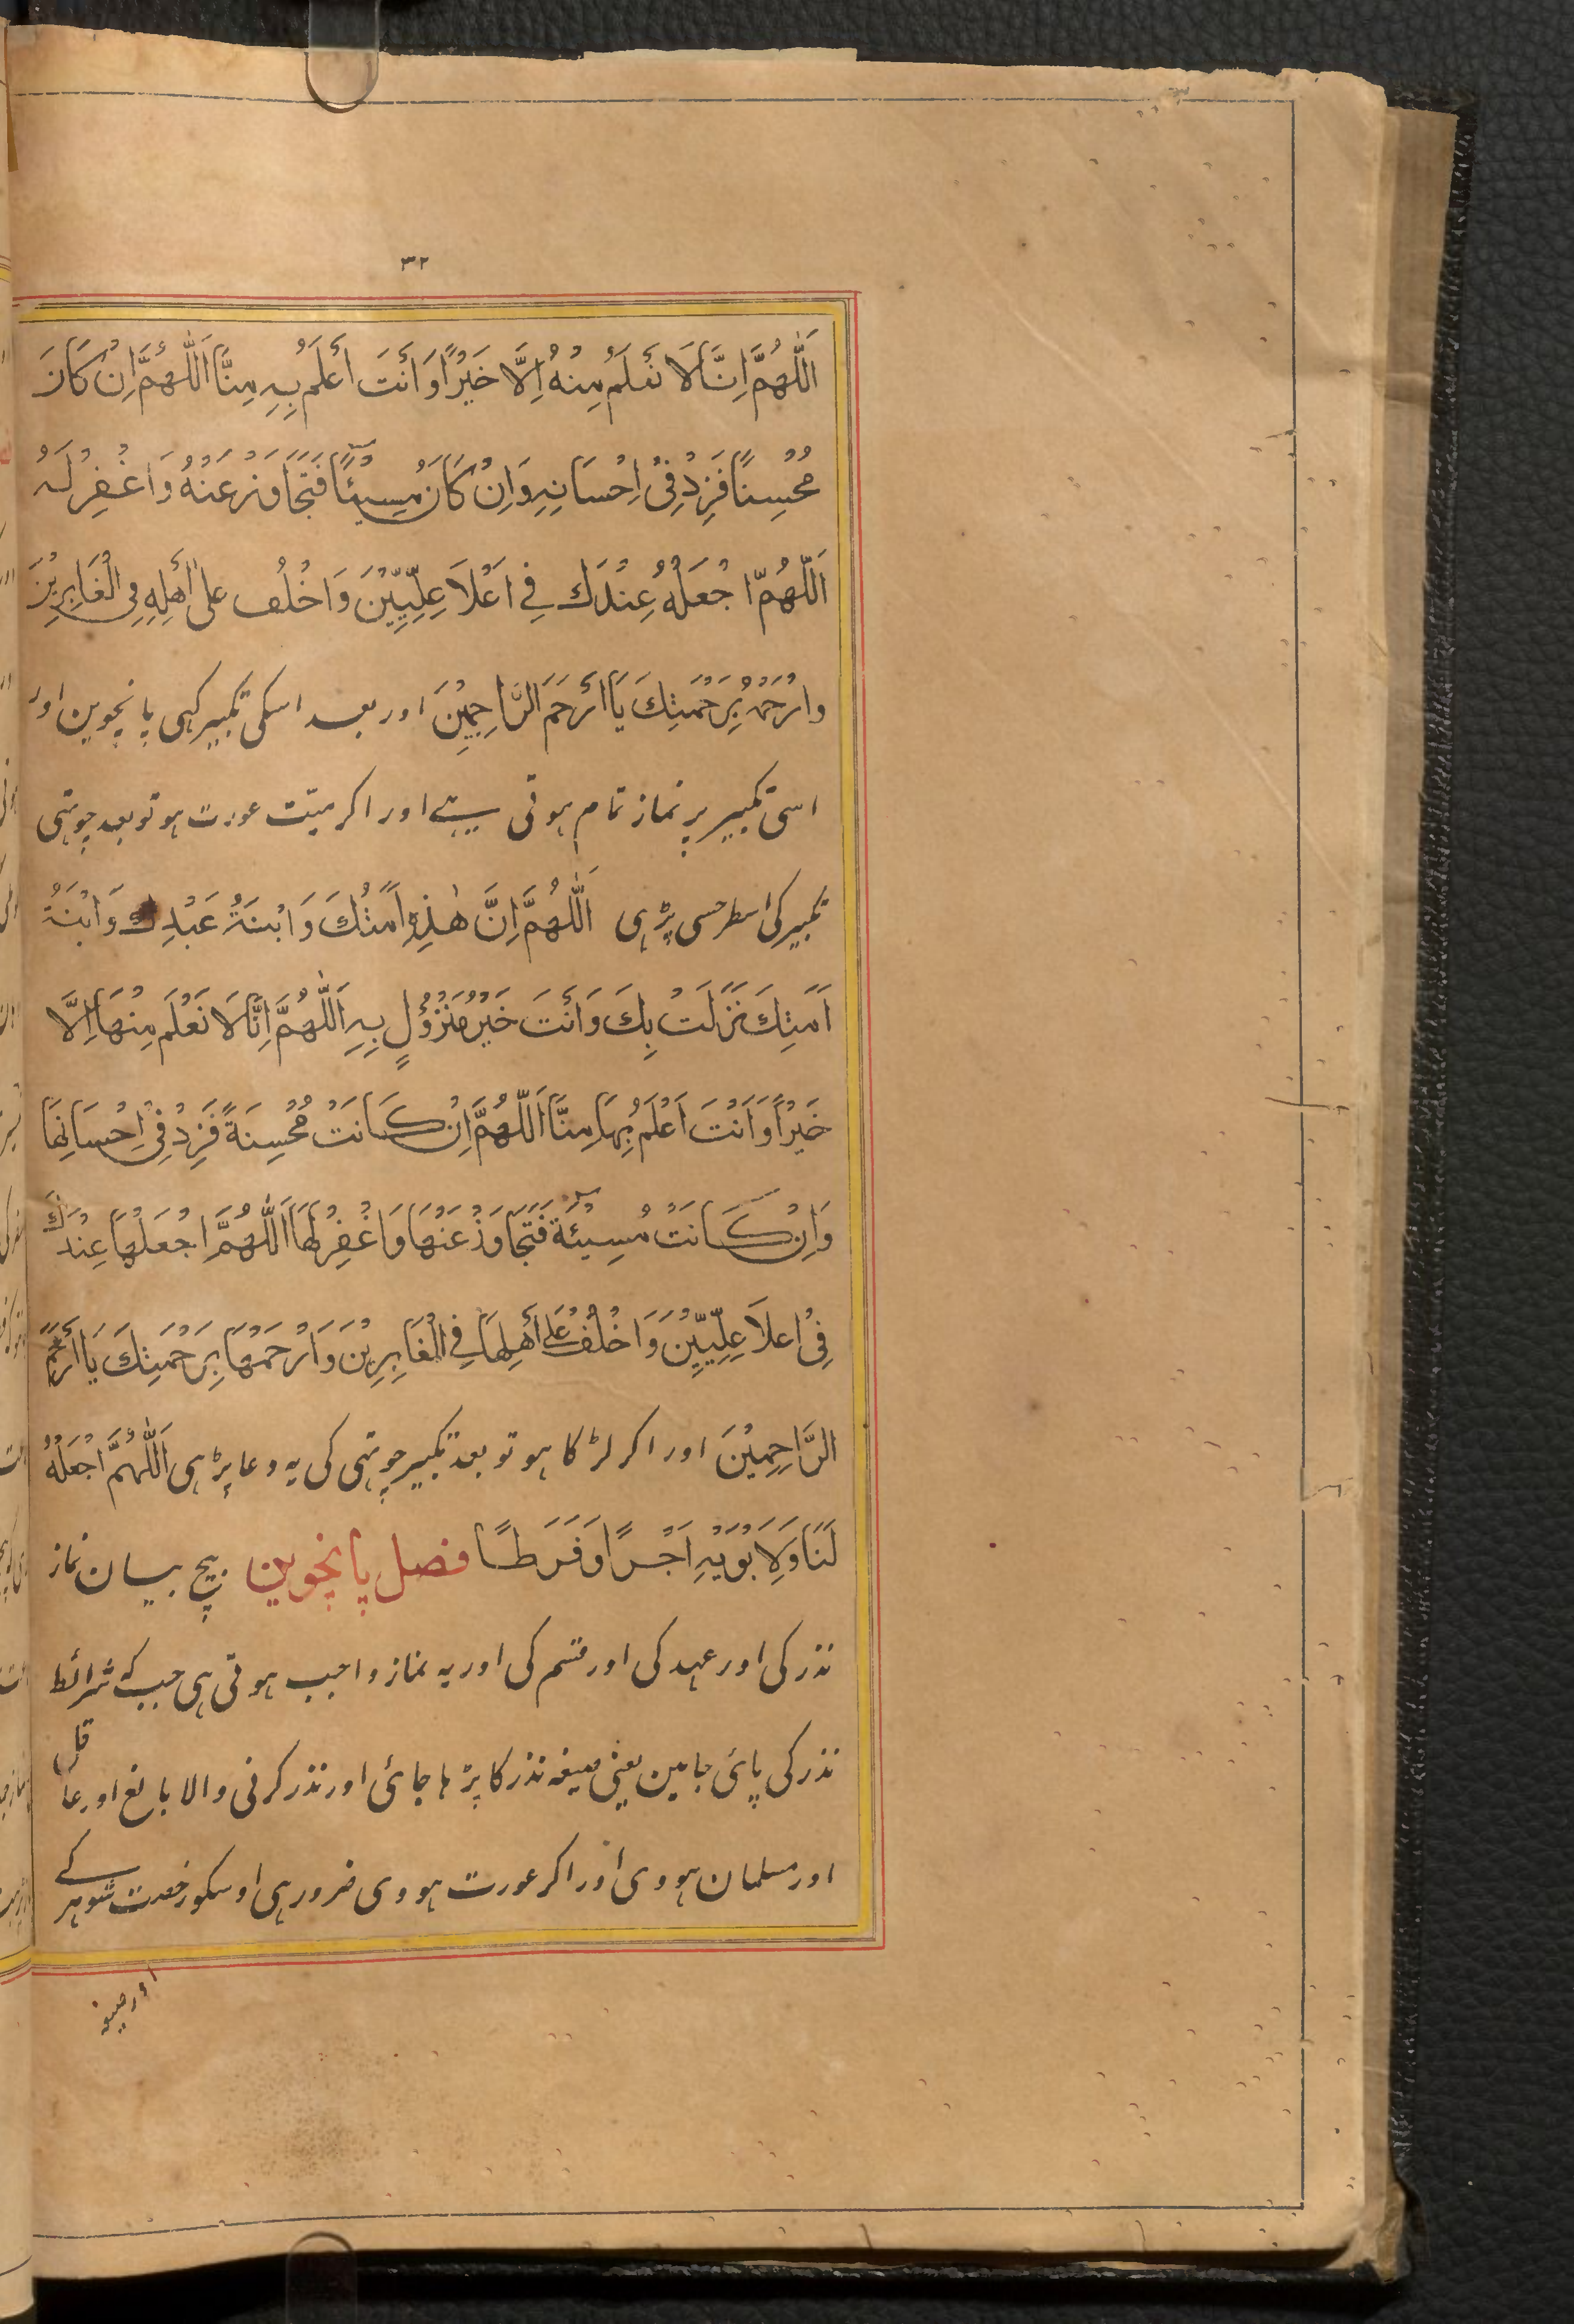 ٣٢
اَللّٰهُمَّ اِنَّا لَا نَعْلَمُ مِنْهُ اِلَّا خَيْرًا وَاَنْتَ اَعْلَمُ بِهِ مِنَّا اَللّٰهُمَّ اِنْ كَانَ
مُحْسِنًا فَزِدْ فِيْ اِحْسَانِهِ وَاِنْ كَانَ مُسِيْئًا فَتَجَاوَزْ عَنْهُ وَاغْفِرْ لَهُ
اَللّٰهُمَّ اجْعَلْهُ عِنْدَكَ فِي اَعْلَا عِلِّيِّيْنَ وَاخْلُفْ عَلٰى اَهْلِهِ فِي الْغَابِرِيْنَ
وَارْحَمْهُ بِرَحْمَتِكَ يَا اَرْحَمَ الرَّاحِمِيْنَ اور بعد اسکی تکبیر کہی پانچوین اور
اسی تکبیر پر نماز تمام ہوتی ہے اور اکر میّت عورت ہو تو بعد چوتہی
تکبیر کی اسطرحسی پڑہی اَللّٰهُمَّ اِنَّ هٰذِهِ اَمَتُكَ وَابْنَةُ عَبْدِكَ وَابْنَةُ
اَمَتِكَ نَزَلَتْ بِكَ وَاَنْتَ خَيْرُ مَنْزُوْلٍ بِهِ اَللّٰهُمَّ اِنَّا لَا نَعْلَمُ مِنْهَا اِلَّا
خَيْرًا وَاَنْتَ اَعْلَمُ بِهَا مِنَّا اَللّٰهُمَّ اِنْ كَانَتْ مُحْسِنَةً فَزِدْ فِيْ اِحْسَانِهَا
وَاِنْ كَانَتْ مُسِيْئَةً فَتَجَاوَزْ عَنْهَا وَاغْفِرْ لَهَا اَللّٰهُمَّ اجْعَلْهَا عِنْدَكَ
فِيْ اَعْلَا عِلِّيِّيْنَ وَاخْلُفْ عَلٰى اَهْلِهَا فِي الْغَابِرِيْنَ وَارْحَمْهَا بِرَحْمَتِكَ يَا اَرْحَمَ
الرَّاحِمِيْنَ اور اکر لڑکا ہو تو بعد تکبیر چوتہی کی یہ دعا پڑہی اَللّٰهُمَّ اجْعَلْهُ
لَنَا وَلِاَبَوَيْهِ اَجْرًا وَفَرَطًا فصل پانچوین بیچ بیان نماز
نذر کی اور عہد کی اور قسم کی اور یہ نماز واجب ہوتی ہی جب کہ شرائط
نذر کی پائی جایین یعنی صیغہ نذر کا پڑہا جائی اور نذر کرنی والا بالغ اور عاقل
اور مسلمان ہووی اور اکر عورت ہووی ضرور ہی اوسکو رخصت شوہر کے
اور صیغہ